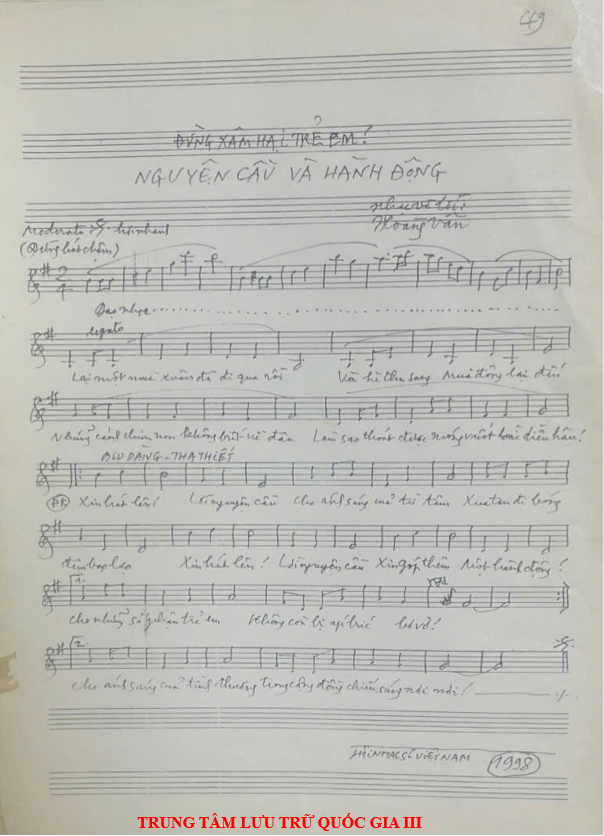 449
ĐỪNG XÂM HẠI TRẺ EM!
NGUYỆN CẦU VÀ HÀNH ĐỘNG
nhạc và lời:
Hoàng Vân
Moderato
(Đừng hát chậm)
2
4
Dạo nhạc
legato
Lại một mùa xuân đã đi qua rồi Và hè thu sang Mùa đông lại đến
Những cánh chim non không biết về đâu Làm sao thoát được móng vuốt loài diều hâu!
DỊU DÀNG - THA THIẾT
ĐK Xin hát lên! Lời nguyện cầu cho ánh sáng của từ tâm Xua tan đi bóng
đêm bạo tạo Xin hát lên! Lời nguyện cầu Xin góp thêm Một hành động!
1.
cho những số phận trẻ em không còn bị bơ vơ!
2.
cho ánh sáng của tình thương trong cộng đồng chiếu sáng nơi nơi!
HỘI NHẠC SĨ VIỆT NAM 1998
TRUNG TÂM LƯU TRỮ QUỐC GIA III